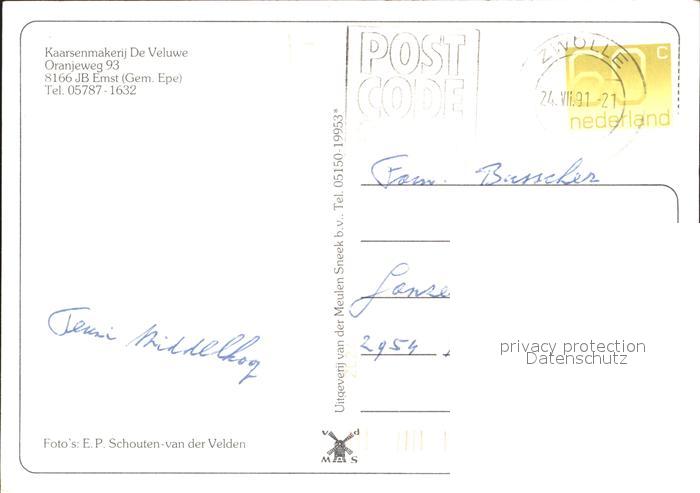 Kaarsenmakerij De Veluwe
Oranjeweg 93
8166 JB Emst (Gem. Epe)
Tel. 05787-1632
POST
CODE
ZWOLLE
24.VII.91-21
60 C
nederland
Fam. Busscher
2954
Middelkoop
Uitgeverij van der Meulen Sneek b.v., Tel. 05150-19953*
Foto's: E.P. Schouten-van der Velden
v d
MAS
privacy protection
Datenschutz